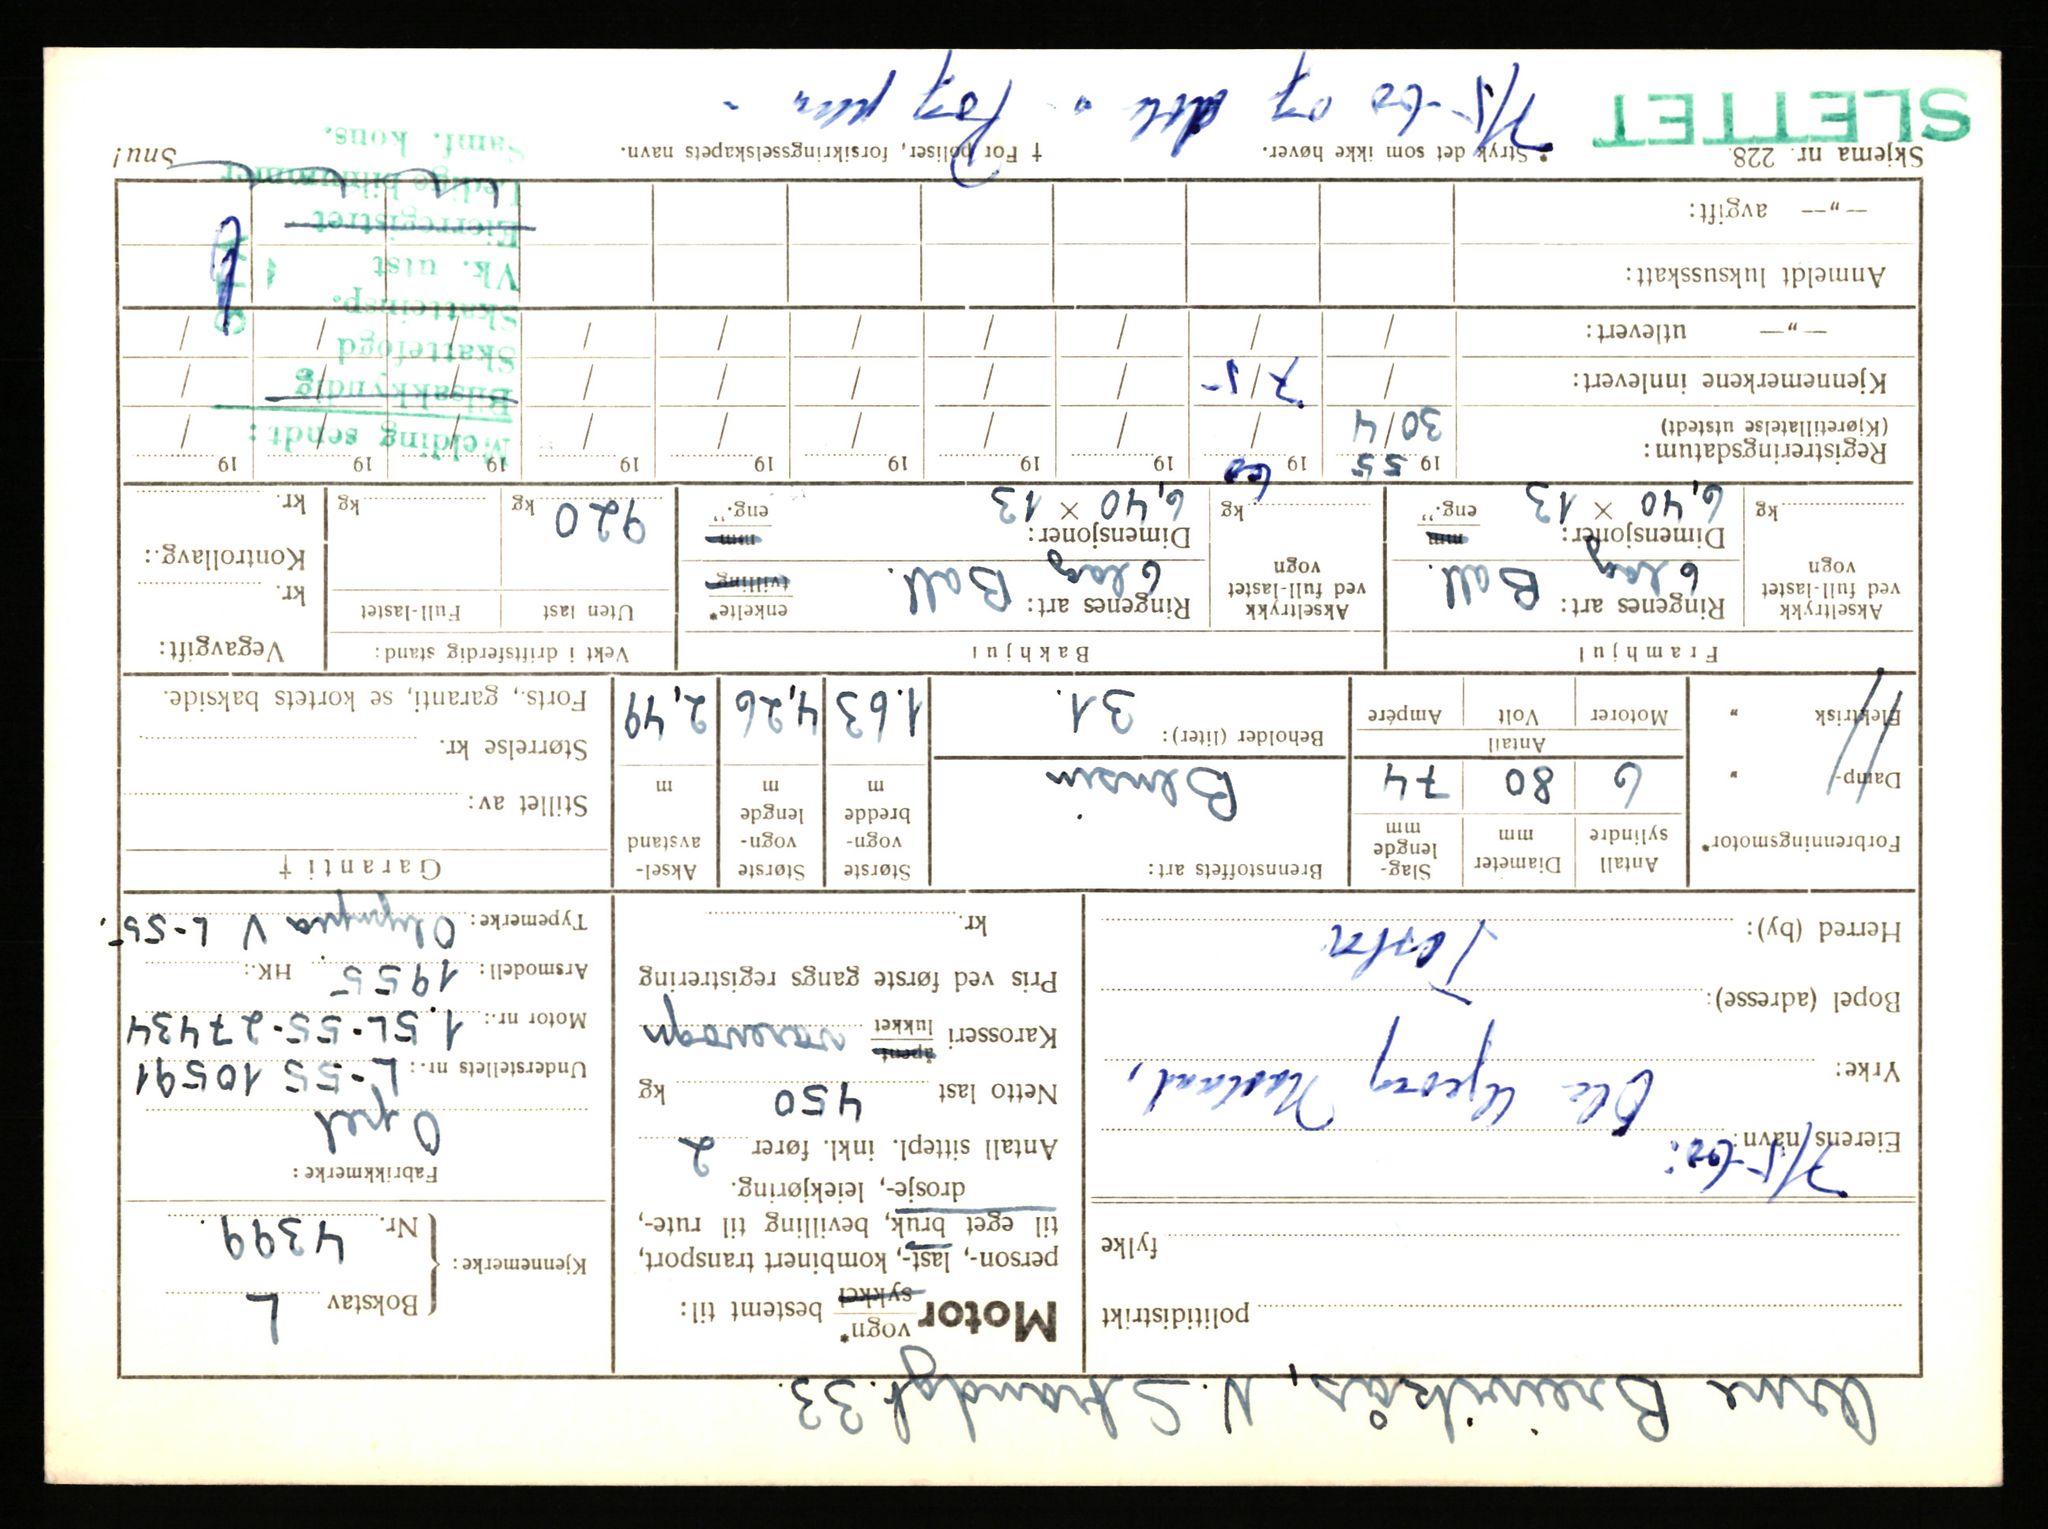 Arne Breivikås, N. Strandgt. 33.
politidistrikt
fylke
7/5-60:
Eierens navn: Ole Georg Næsland,
Yrke:
Bopel (adresse):
Herred (by): Tasta
Motor vogn* sykkel bestemt til:
person-, last-, kombinert transport,
til eget bruk, bevilling til rute-,
drosje-, leiekjøring.
Antall sittepl. inkl. fører 2
Netto last 450 kg
Karosseri åpent lukket varevogn
Pris ved første gangs registrering
kr.
Kjennemerke: Bokstav L
Nr. 4399.
Fabrikkmerke:
Opel
Understellets nr.: L-55 10591
Motor nr.: 1.5L-55-27434
Årsmodell: 1955 HK.:
Typemerke: Olympia V L-55.
Forbrenningsmotor*
Damp- „
Elektrisk „
Antall sylindre 6
Diameter mm 80
Slag-lengde mm 74
Antall
Motorer Volt Ampére
Brennstoffets art:
Bensin
Beholder (liter): 31.
Største vogn-bredde m 1.63
Største vogn-lengde m 4,26
Aksel-avstand m 2,49
Garanti †
Stillet av:
Størrelse kr.
Forts., garanti, se kortets bakside.
Framhjul
Akseltrykk ved full-lastet vogn kg
Ringenes art: 6 lag Ball.
Dimensjoner: 6,40 × 13 mm eng.”
Bakhjul
Akseltrykk ved full-lastet vogn kg
Ringenes art: 6 lag Ball. enkelte* tvilling
Dimensjoner: 6,40 × 13 mm eng.”
Vekt i driftsferdig stand:
Uten last Full-lastet
920 kg kg
Vegavgift:
kr.
Kontrollavg.:
kr.
Registreringsdatum: 19 55 19 60 19 19 19 19 19 19 19 19
(Kjøretillatelse utstedt) 30/4
Kjennemerkene innlevert: 7/5
—„— utlevert:
Anmeldt luksusskatt:
—„— avgift:
Melding sendt:
Bilsakkyndig
Skattefogd
Skatteinsp.
Vk. utst
Eierregistret
Ledige bilnummer
Samf. kons.
Skjema nr. 228.
* Stryk det som ikke høver.
† For poliser, forsikringsselskapets navn.
Snu!
SLETTET
7/5-60 og